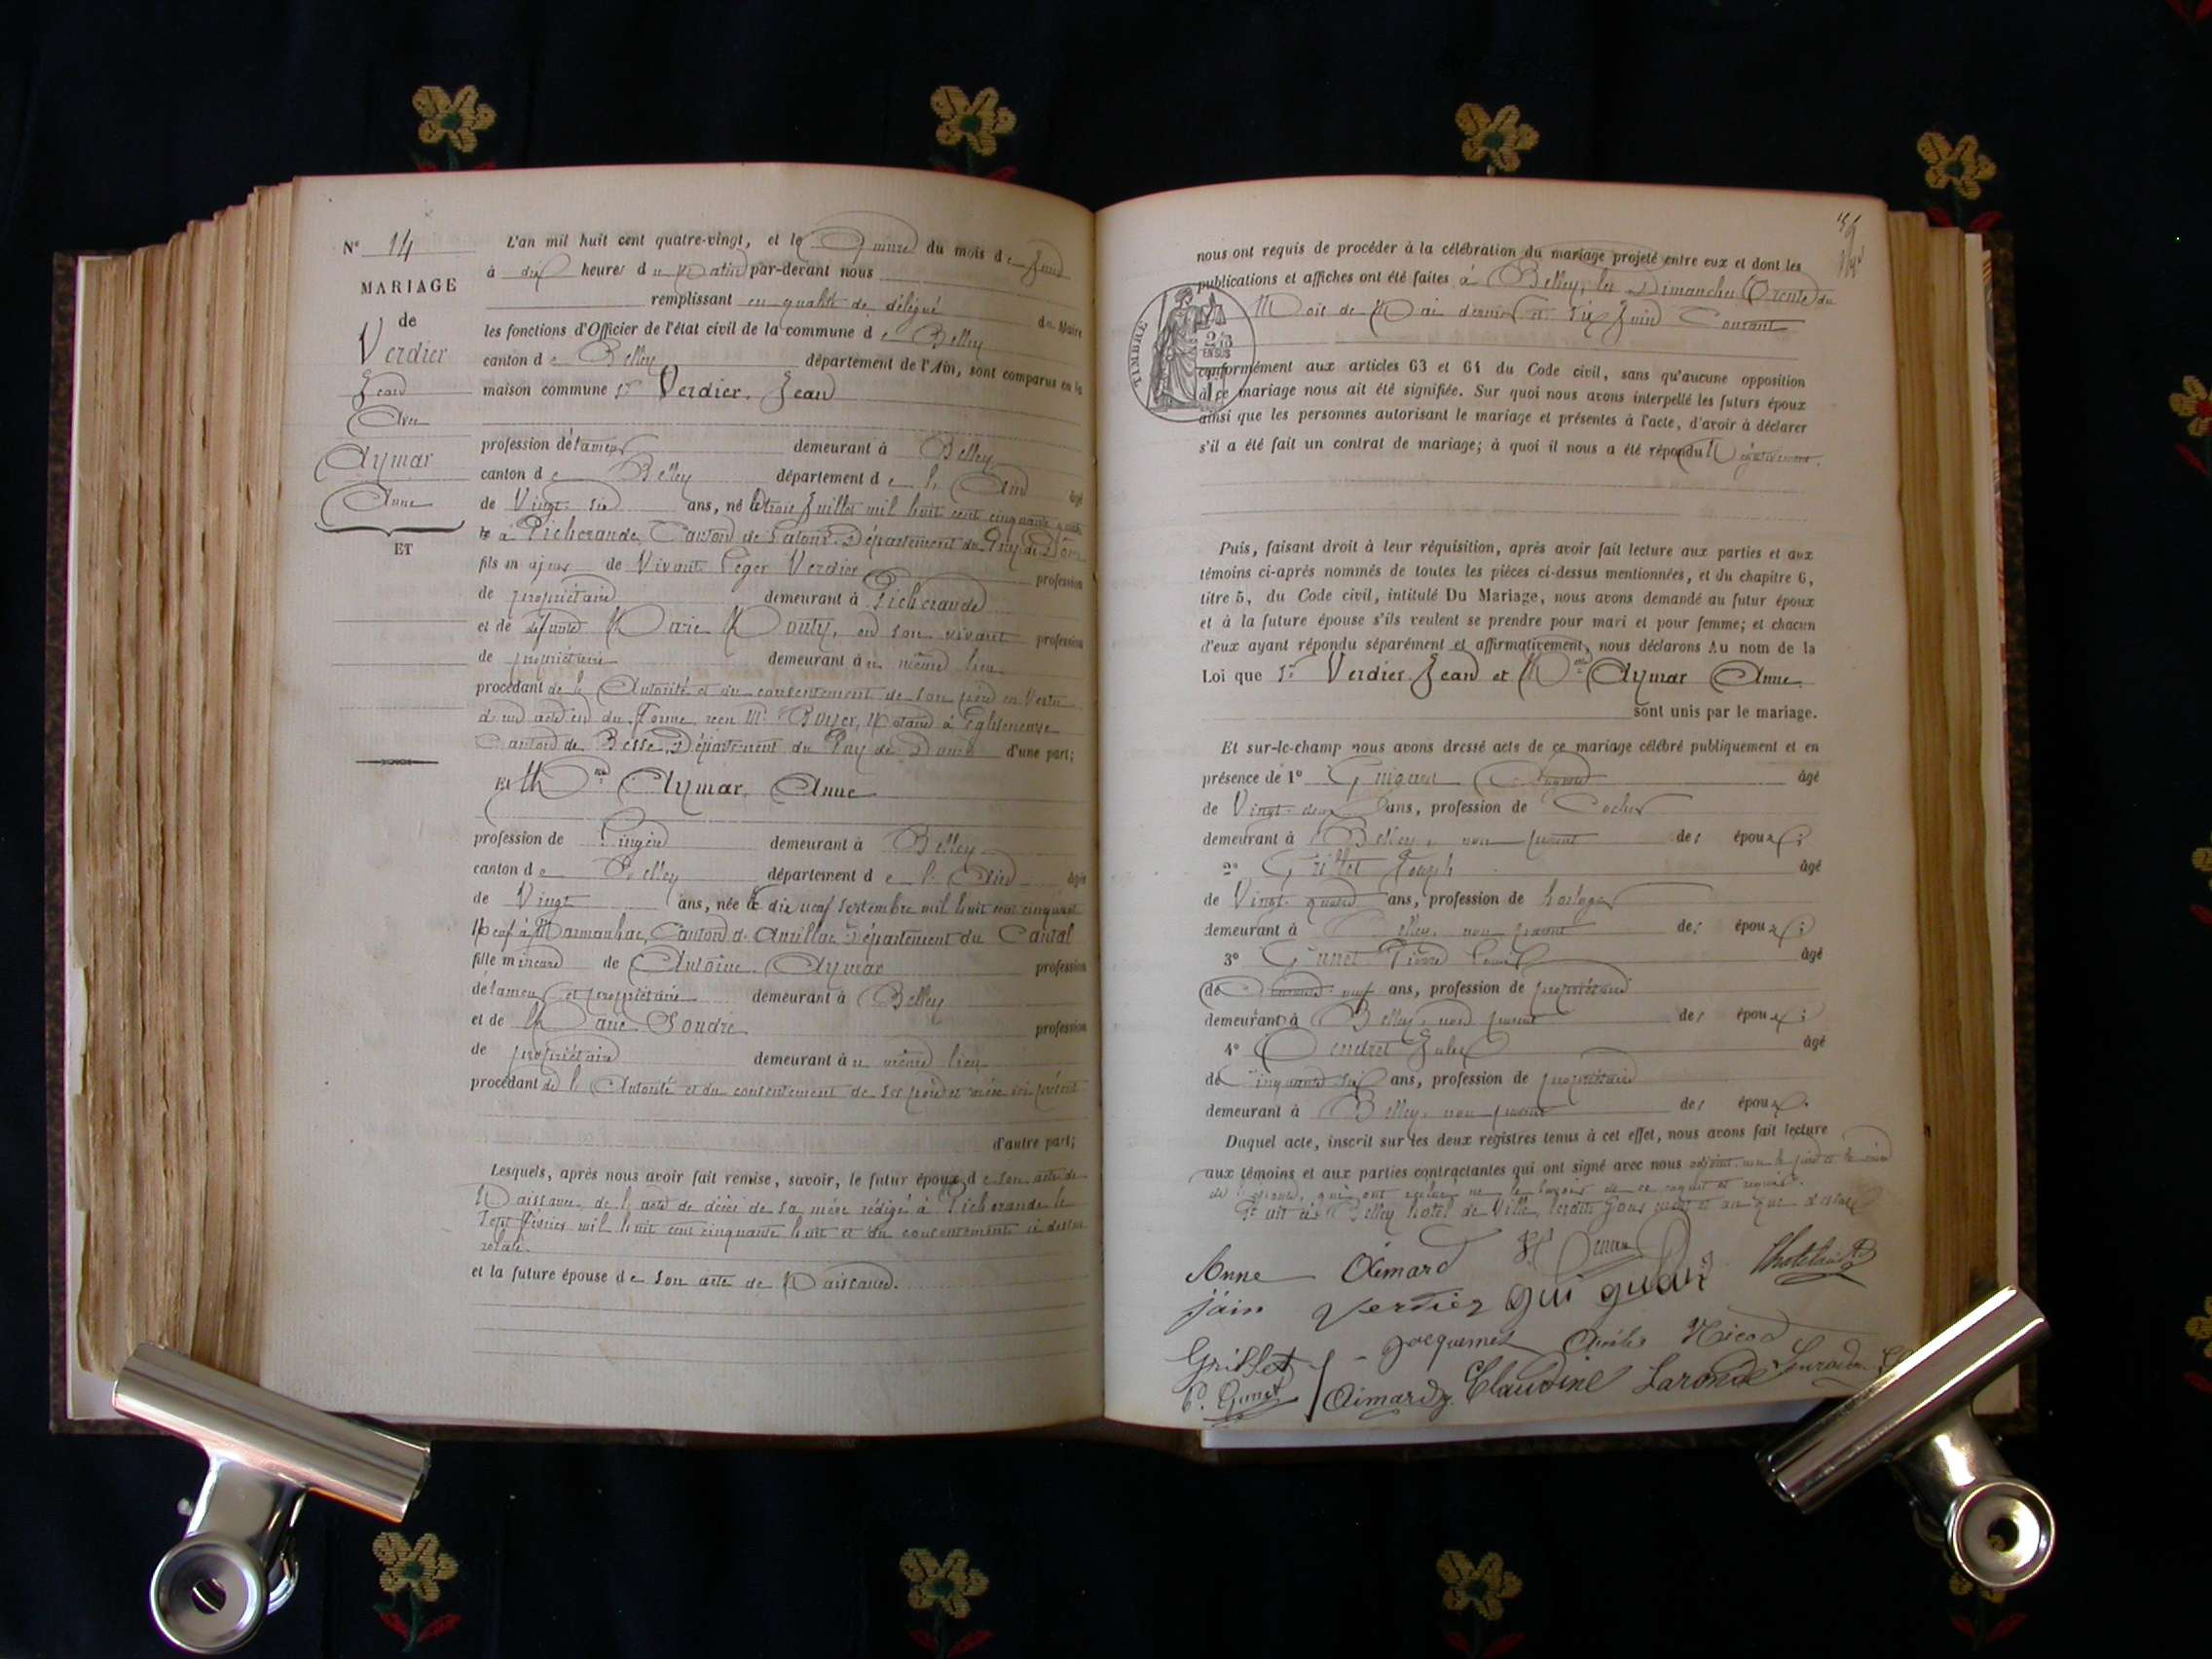 N° 14
MARIAGE
de
Verdier
Jean
Avec
Aymar
Anne
ET
L'an mil huit cent quatre-vingt, et le Quinze du mois de Juin
à dix heures du Matin par-devant nous
remplissant en qualité de délégué du Maire
les fonctions d'Officier de l'état civil de la commune de Belley
canton de Belley département de l'Ain, sont comparus en la
maison commune Sr Verdier Jean
profession d'étameur demeurant à Belley
canton de Belley département de l'Ain âgé
de Vingt-six ans, né le trois Juillet mil huit cent cinquante
à Picherande, Canton de Latour Département du Puy de Dôme
fils majeur de Vivant Léger Verdier profession
de propriétaire demeurant à Picherande
et de défunte Marie Mouty, en son vivant profession
de propriétaire demeurant au même lieu
procédant de l'Autorité et du consentement de son père en Vertu
d'un acte en due forme, reçu Me Boyer, Notaire à Egliseneuve
Canton de Besse, Département du Puy de Dôme d'une part;
Et Mlle Aymar, Anne
profession de Lingère demeurant à Belley
canton de Belley département de l'Ain âgée
de Vingt ans, née le dix neuf Septembre mil huit cent cinquante
Neuf à Marmanhac, Canton d'Aurillac Département du Cantal
fille mineure de Antoine Aymar profession
d'étameur et propriétaire demeurant à Belley
et de Marie Soudre profession
de propriétaire demeurant au même lieu
procédant de l'Autorité et du consentement de ses père et mère ici présents
d'autre part;
Lesquels, après nous avoir fait remise, savoir, le futur époux, de son acte de
Naissance, de l'acte de décès de sa mère rédigé à Picherande le
Sept février mil huit cent cinquante huit et du consentement ci dessus
relaté.
et la future épouse de son acte de Naissance.
nous ont requis de procéder à la célébration du mariage projeté entre eux et dont les
publications et affiches ont été faites à Belley, les Dimanches Trente du
Mois de Mai dernier et Six Juin Courant
TIMBRE
2/10
EN SUS
conformément aux articles 63 et 64 du Code civil, sans qu'aucune opposition
à ce mariage nous ait été signifiée. Sur quoi nous avons interpellé les futurs époux
ainsi que les personnes autorisant le mariage et présentes à l'acte, d'avoir à déclarer
s'il a été fait un contrat de mariage; à quoi il nous a été répondu Négativement.
Puis, faisant droit à leur réquisition, après avoir fait lecture aux parties et aux
témoins ci-après nommés de toutes les pièces ci-dessus mentionnées, et du chapitre 6,
titre 5, du Code civil, intitulé Du Mariage, nous avons demandé au futur époux
et à la future épouse s'ils veulent se prendre pour mari et pour femme; et chacun
d'eux ayant répondu séparément et affirmativement, nous déclarons Au nom de la
Loi que Sr Verdier Jean et Mlle Aymar Anne
sont unis par le mariage.
Et sur-le-champ nous avons dressé acte de ce mariage célébré publiquement et en
présence de 1° Guiguet âgé
de Vingt-deux ans, profession de Cocher
demeurant à Belley, non parent des époux;
2° Grillet Joseph âgé
de Vingt quatre ans, profession de horloger
demeurant à Belley, non parent des époux;
3° Gunet Pierre Louis âgé
de neuf ans, profession de propriétaire
demeurant à Belley, non parent des époux;
4° Jules âgé
de Cinquante six ans, profession de propriétaire
demeurant à Belley, non parent des époux.
Duquel acte, inscrit sur les deux registres tenus à cet effet, nous avons fait lecture
aux témoins et aux parties contractantes qui ont signé avec nous adjoint, non le père et la mère
de l'épouse, qui ont déclaré ne le savoir de ce enquis et requis.
Fait à Belley hôtel de Ville, lesdits jour, mois et an que dessus
Anne Aimard
jain Verdier gui guet
Grillet Jacquemet Charles Nicod
P. Gunet Aimard Claudine Laronde